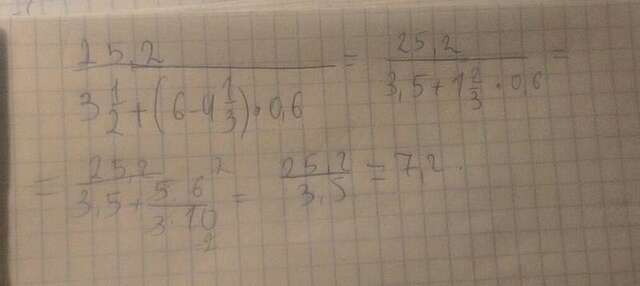 25,2 / (3 1/2 + (6 - 4 1/3) · 0,6) = 25,2 / (3,5 + 1 2/3 · 0,6) =
= 25,2 / (3,5 + 5 6 2 / 3 · 10 2) = 25,2 / 3,5 = 7,2.